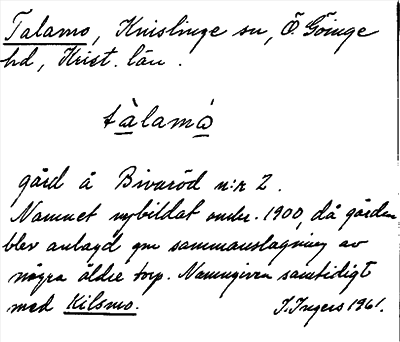 Talamo, Knislinge sn, Ö. Göinge
hd, Krist. län.
tàlamó
gård å Bivaröd n:r 2.
Namnet nybildat omkr. 1900, då gården
blev anlagd gm sammanslagning av
några äldre torp. Namngiven samtidigt
med Kilsmo. I. Ingers 1961.